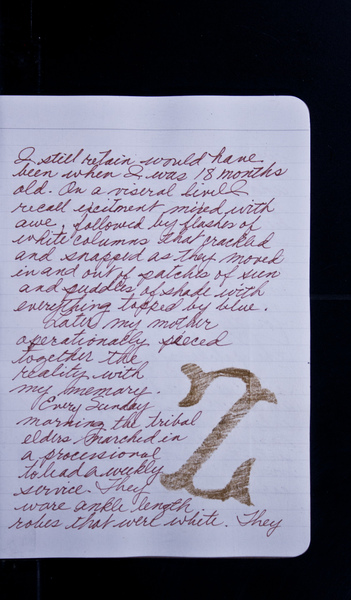 I still retain would have
been when I was 18 months
old. On a viseral level I
recall exitment mixed with
awe, followed by flashes of
white columns that crackled
and snapped as they moved
in and out of patches of sun
and puddles of shade with
everything topped by blue.
Later my mother
operationally pieced
together the
reality with
my memory.
Every Sunday
morning the tribal
elders marched in
a processional
to lead a weekly
service. They
ware ankle length
robes that were white. They
Z